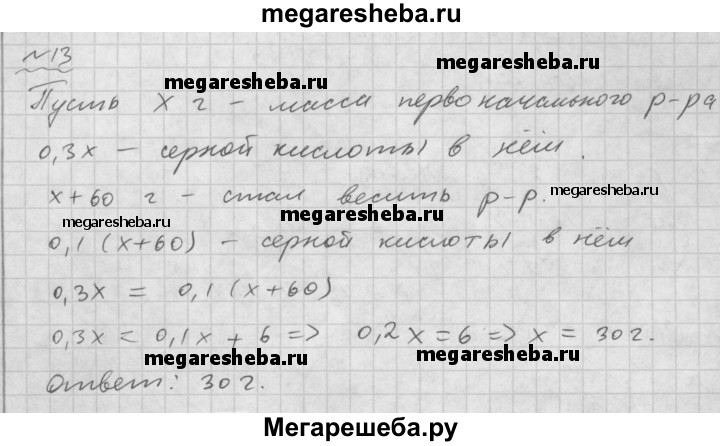 megaresheba.ru
№13
megaresheba.ru
Пусть x г – масса первоначального р-ра
0,3x – серной кислоты в нём.
x+60 г – стал весить р-р.
megaresheba.ru
megaresheba.ru
megaresheba.ru
0,1 (x+60) – серной кислоты в нём
0,3x = 0,1 (x+60)
0,3x = 0,1x + 6 => 0,2x = 6 => x = 30 г.
megaresheba.ru
megaresheba.ru
Ответ: 30 г.
Мегарешеба.ру